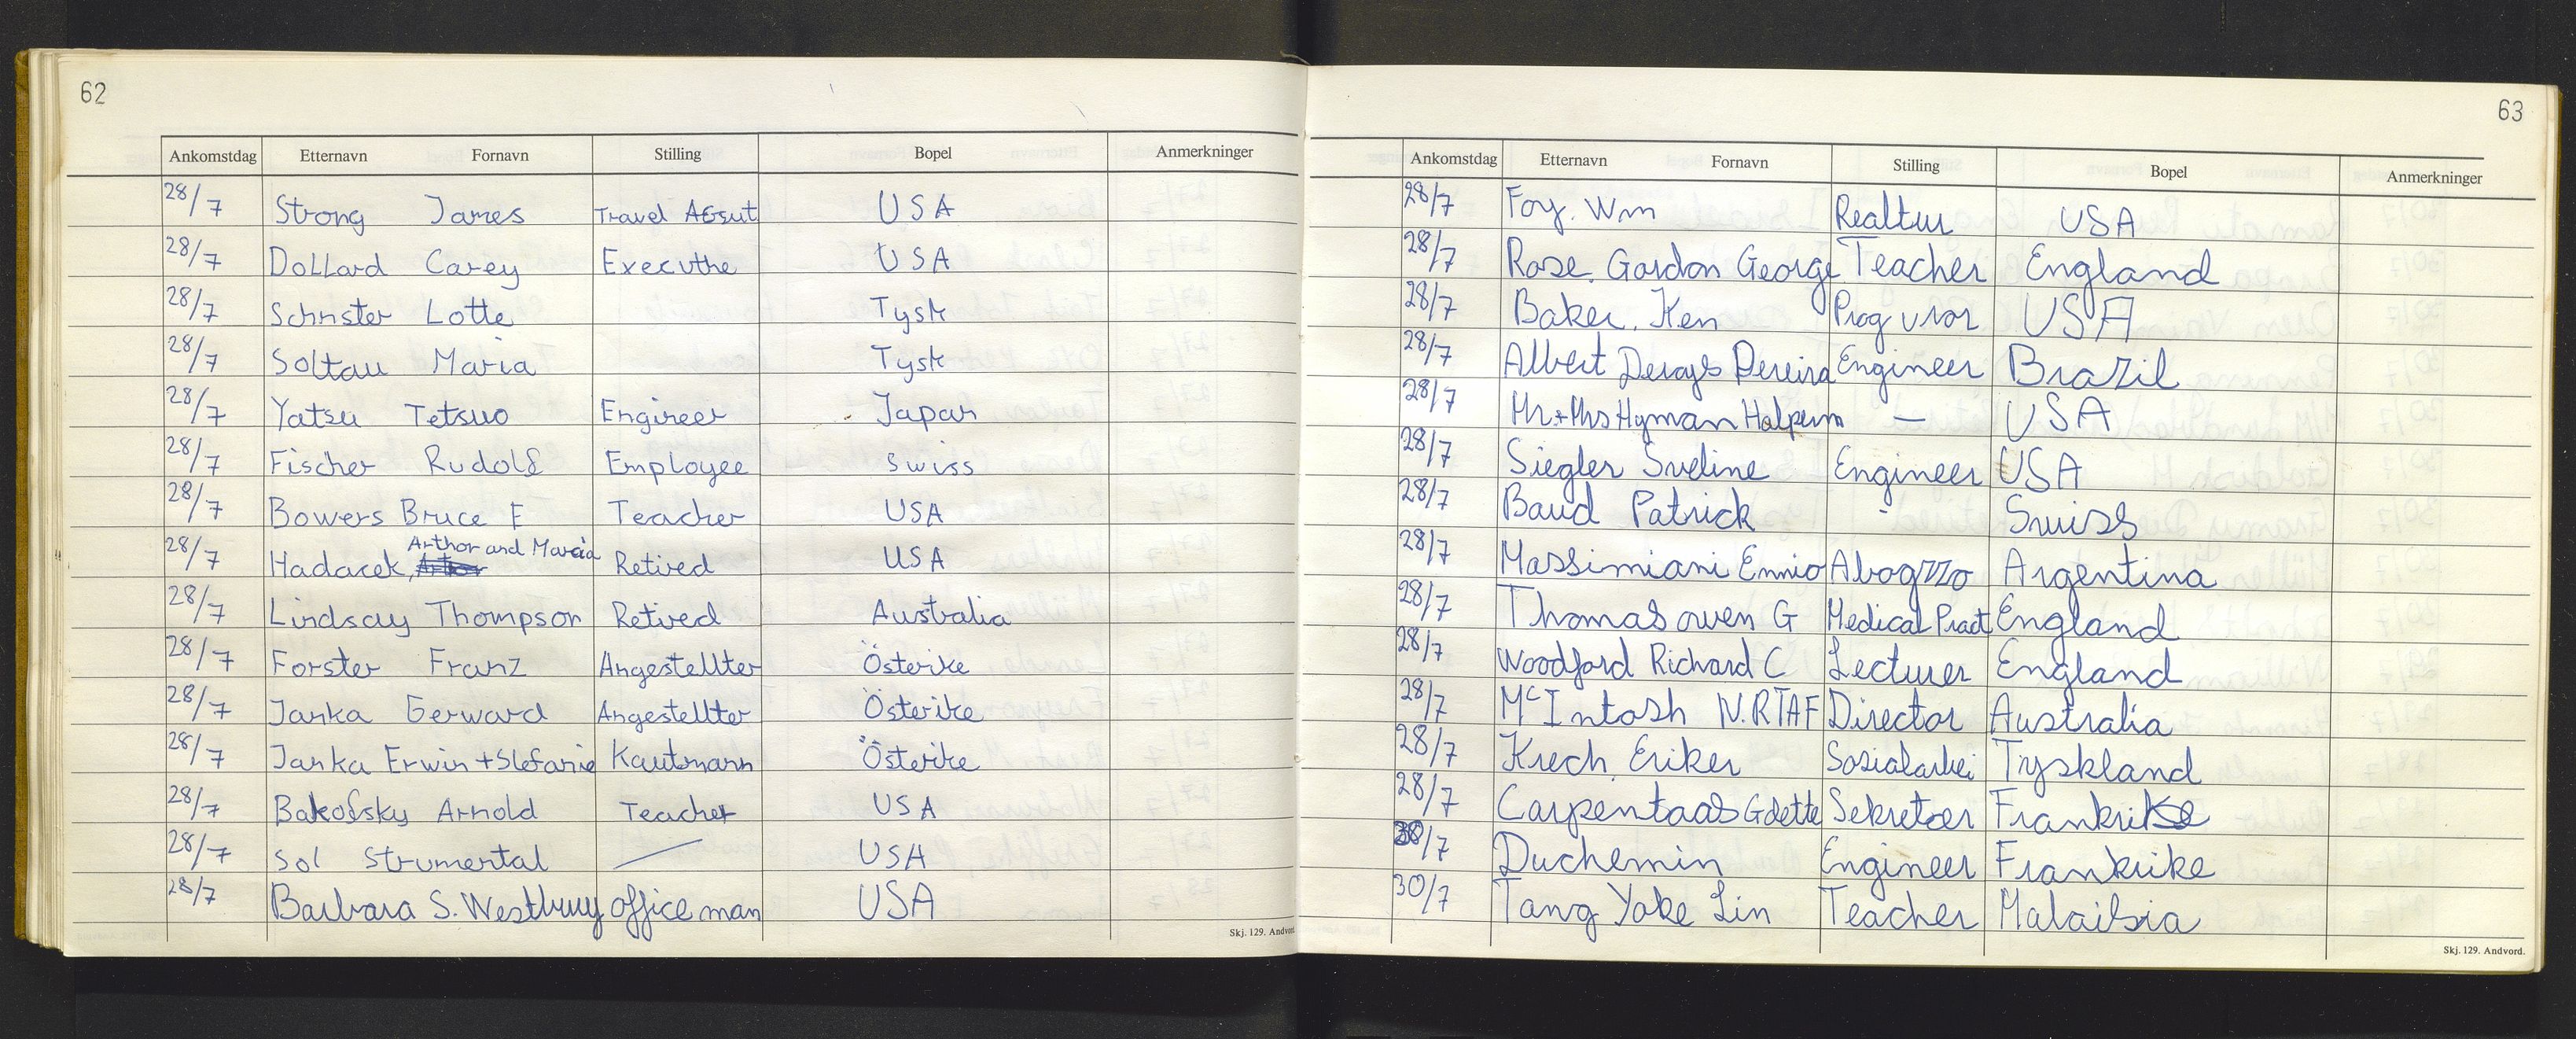 62
Ankomstdag Etternavn Fornavn Stilling Bopel Anmerkninger
28/7 Strong James Travel AGsut USA
28/7 Dollard Carey Executhe USA
28/7 Schnster Lotte Tysk
28/7 Soltau Maria Tysk
28/7 Yatsu Tetsuo Engineer Japan
28/7 Fischer Rudolf Employee Swiss
28/7 Bowers Bruce E Teacher USA
28/7 Hadacek, Arthor and Marcia Retired USA
28/7 Lindsay Thompson Retired Australia
28/7 Forster Franz Angestellter Österike
28/7 Janka Gerward Angestellter Österike
28/7 Janka Erwin + Stefanie Kautmann Österike
28/7 Bakofsky Arnold Teacher USA
28/7 Sol Strumental USA
28/7 Barbara S. Westbury office man USA
Skj. 129. Andvord
63
Ankomstdag Etternavn Fornavn Stilling Bopel Anmerkninger
28/7 Foy. Wm Realtur USA
28/7 Rose Gordon George Teacher England
28/7 Baker. Ken USA
28/7 Albert Pereira Engineer Brazil
28/7 Mr.+Mrs Hyman Halpern — USA
28/7 Siegler Sveline Engineer USA
28/7 Baud Patrick - Swiss
28/7 Massimiani Ennio Abogzzo Argentina
28/7 Thomas owen G Medical Pract England
28/7 Woodford Richard C Lecturer England
28/7 McIntosh N.RTAF Director Australia
28/7 Krech. Eriker Sosialarbei Tyskland
28/7 Carpentaas Gdette Sekretær Frankrike
30/7 Duchemin Engineer Frankrike
30/7 Tang Yoke Lin Teacher Malaisia
Skj. 129. Andvord.